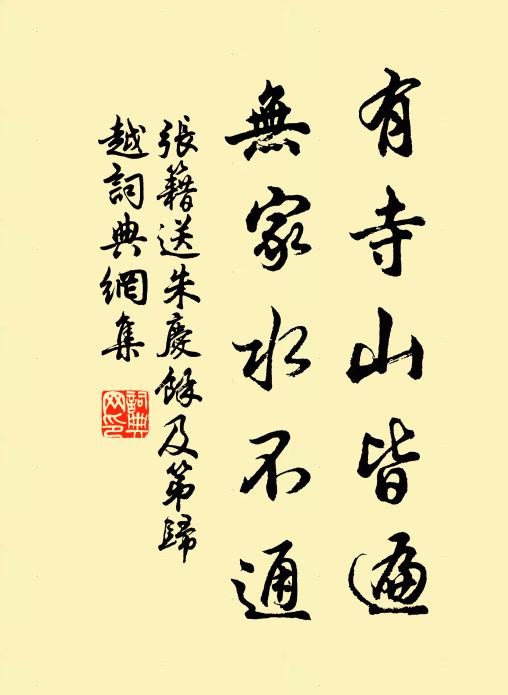 有寺山皆遍
無家水不通
張籍送朱慶餘及第歸
越詞典網集
詞典网印